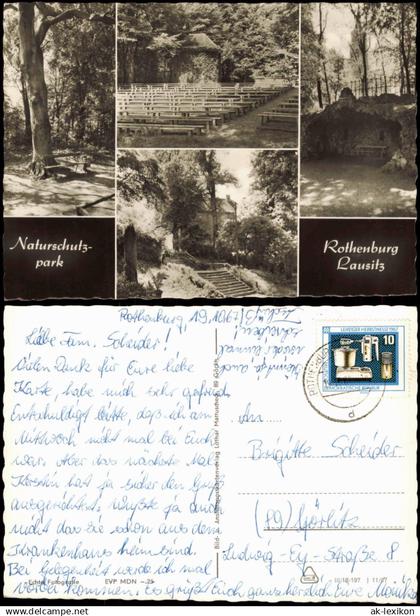 Naturschutz-
park
Rothenburg
Lausitz
Rothenburg, 19.10.67
Liebe Fam. Scheider!
Vielen Dank für Eure liebe
Karte, habe mich sehr gefreut.
Entschuldigt bitte, daß ich am
Mittwoch nicht mal bei Euch
war. Aber das nächste Mal.
hat ja sicher den Gruß
ausgerichtet. Wußte ja auch
nicht das Sie schon aus dem
Krankenhaus heim sind.
Bei Gelegenheit werde ich mal
vorbei kommen. Es grüßt Euch ganz herzlich Eure
LEIPZIGER HERBSTMESSE 1967
10
DEUTSCHE DEMOKRATISCHE REPUBLIK
An
Brigitte Scheider
(89) Görlitz
Ludwig-Ey-Straße 8
Echte Fotografie
EVP MDN -.25
III/18/197
Bild- und Ansichtskartenverlag Lothar
89 Görlitz
© ak-lexikon.com